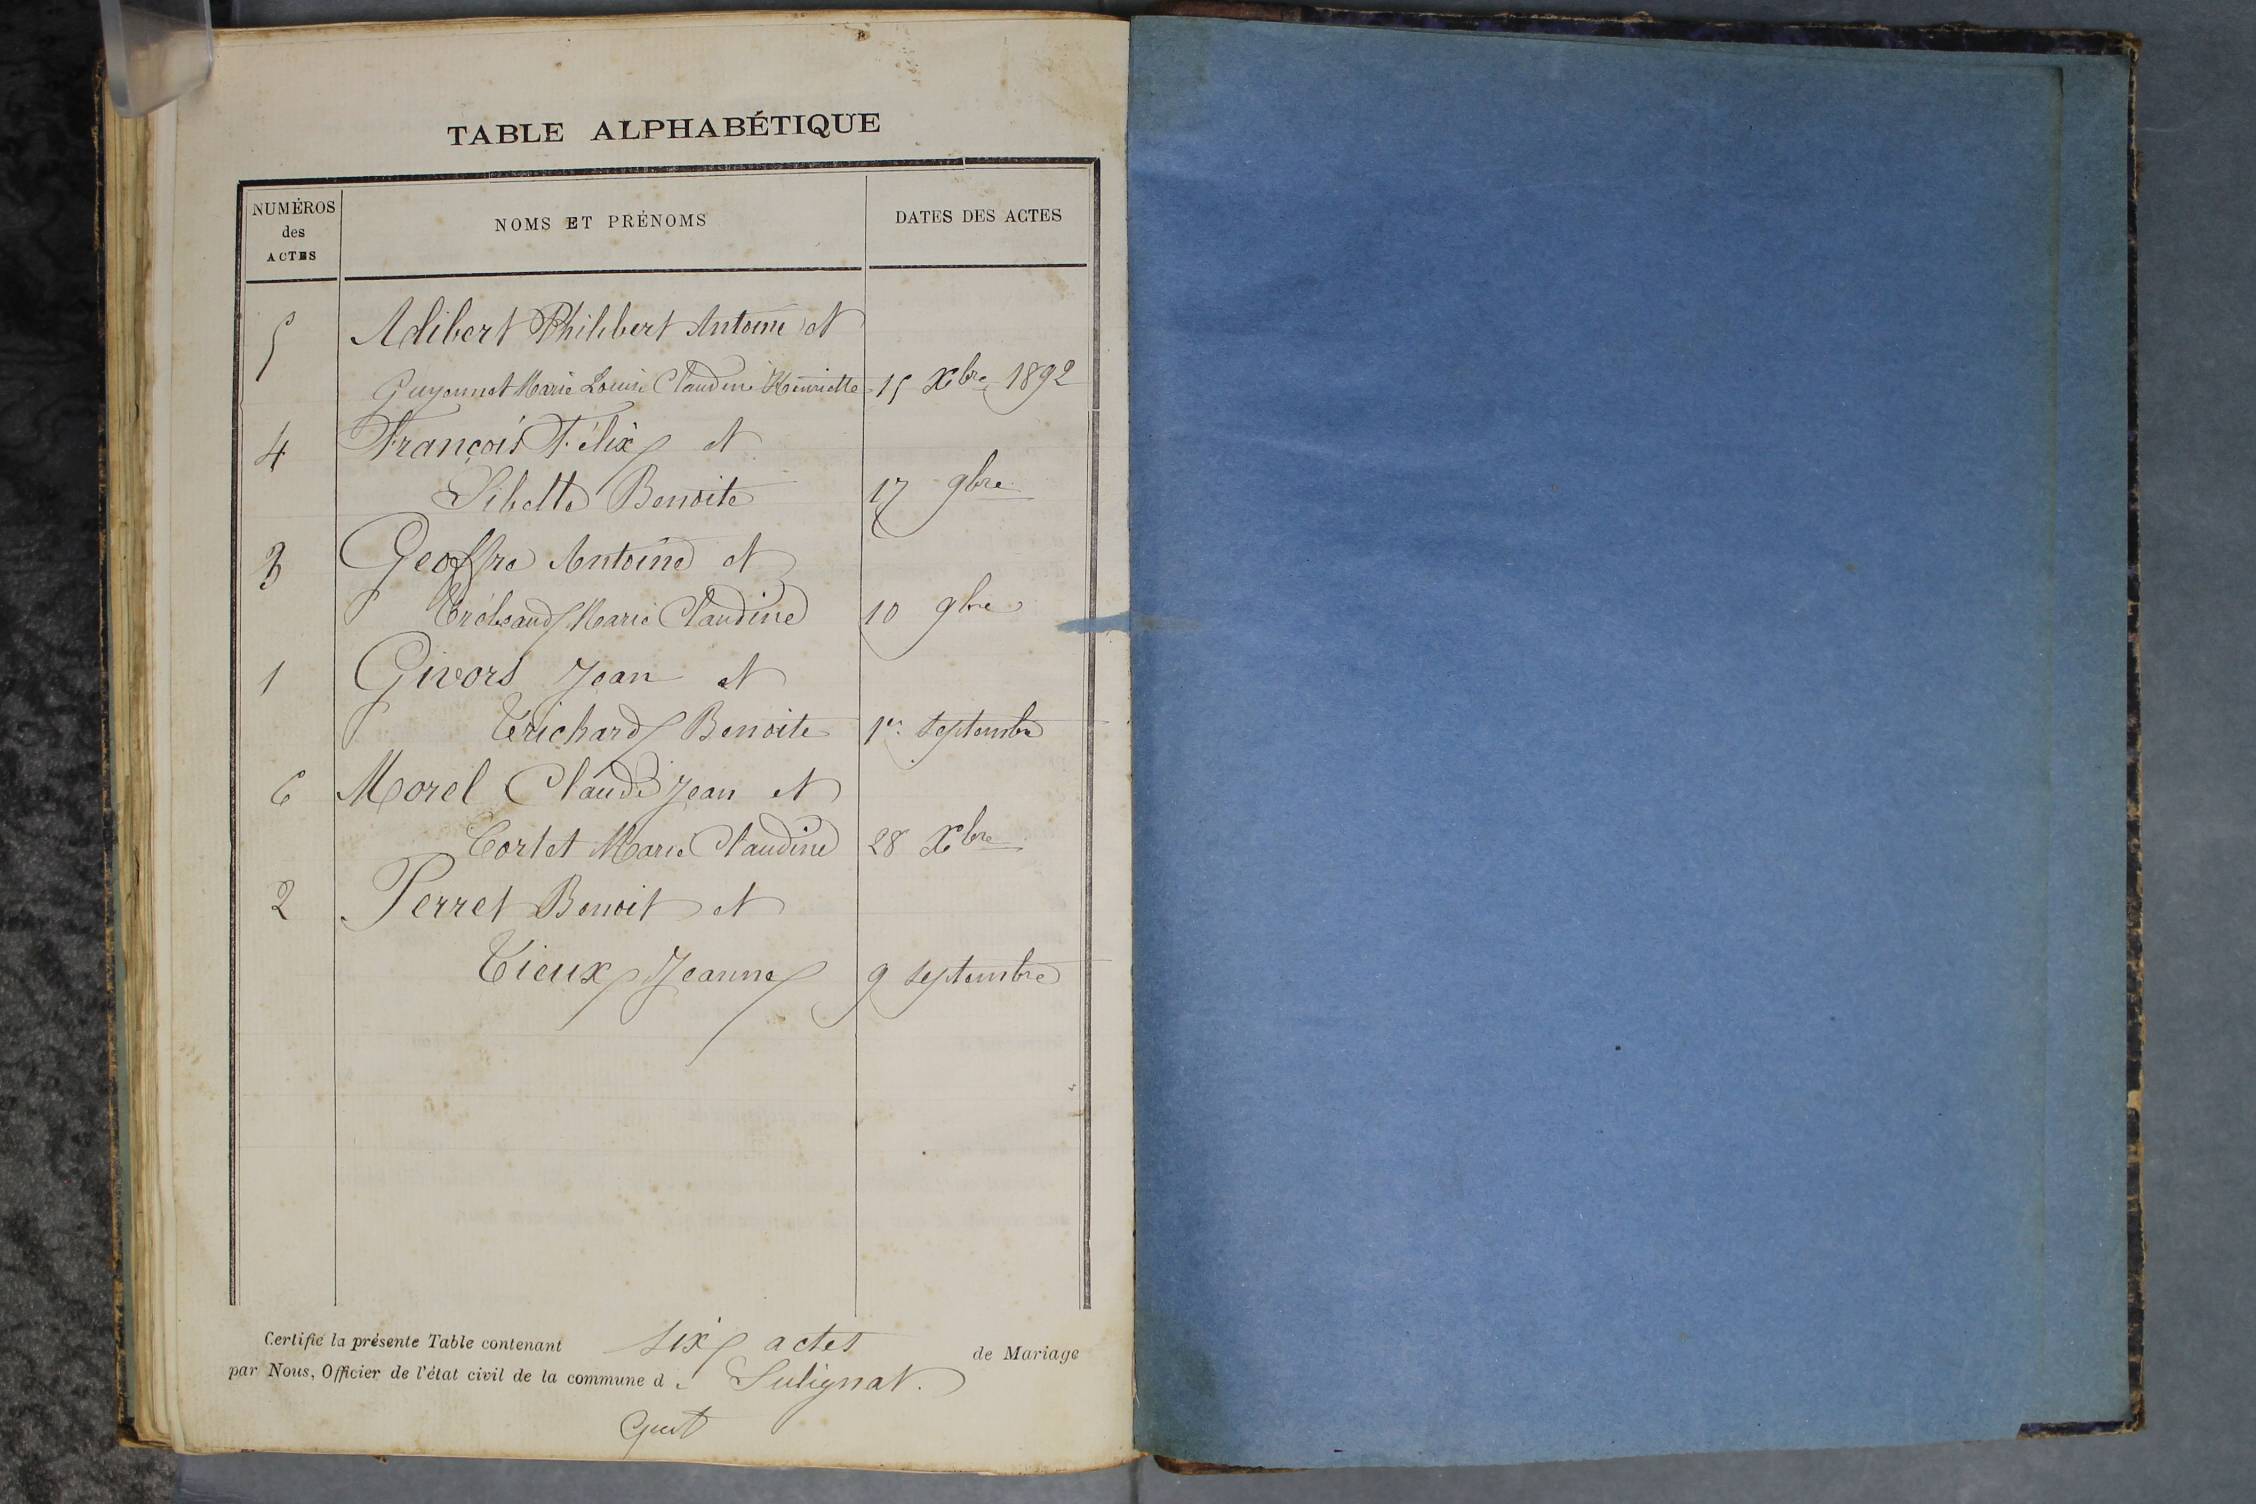 TABLE ALPHABÉTIQUE
NUMÉROS des ACTES
NOMS ET PRÉNOMS
DATES DES ACTES
5 Adibert Philibert Antoine et
Guyonnet Marie Louise Claudine Henriette 15 Xbre 1892
4 François Félix et
Sibette Benoite 17 9bre
3 Geoffre Antoine et
Marie Claudine 10 9bre
1 Givors Jean et
Trichard Benoite 1er septembre
6 Morel Claude Jean et
Cortet Marie Claudine 28 Xbre
2 Perret Benoit et
Tieux Jeanne 9 septembre
Certifié la présente Table contenant six actes de Mariage
par Nous, Officier de l'état civil de la commune de Sulignat.